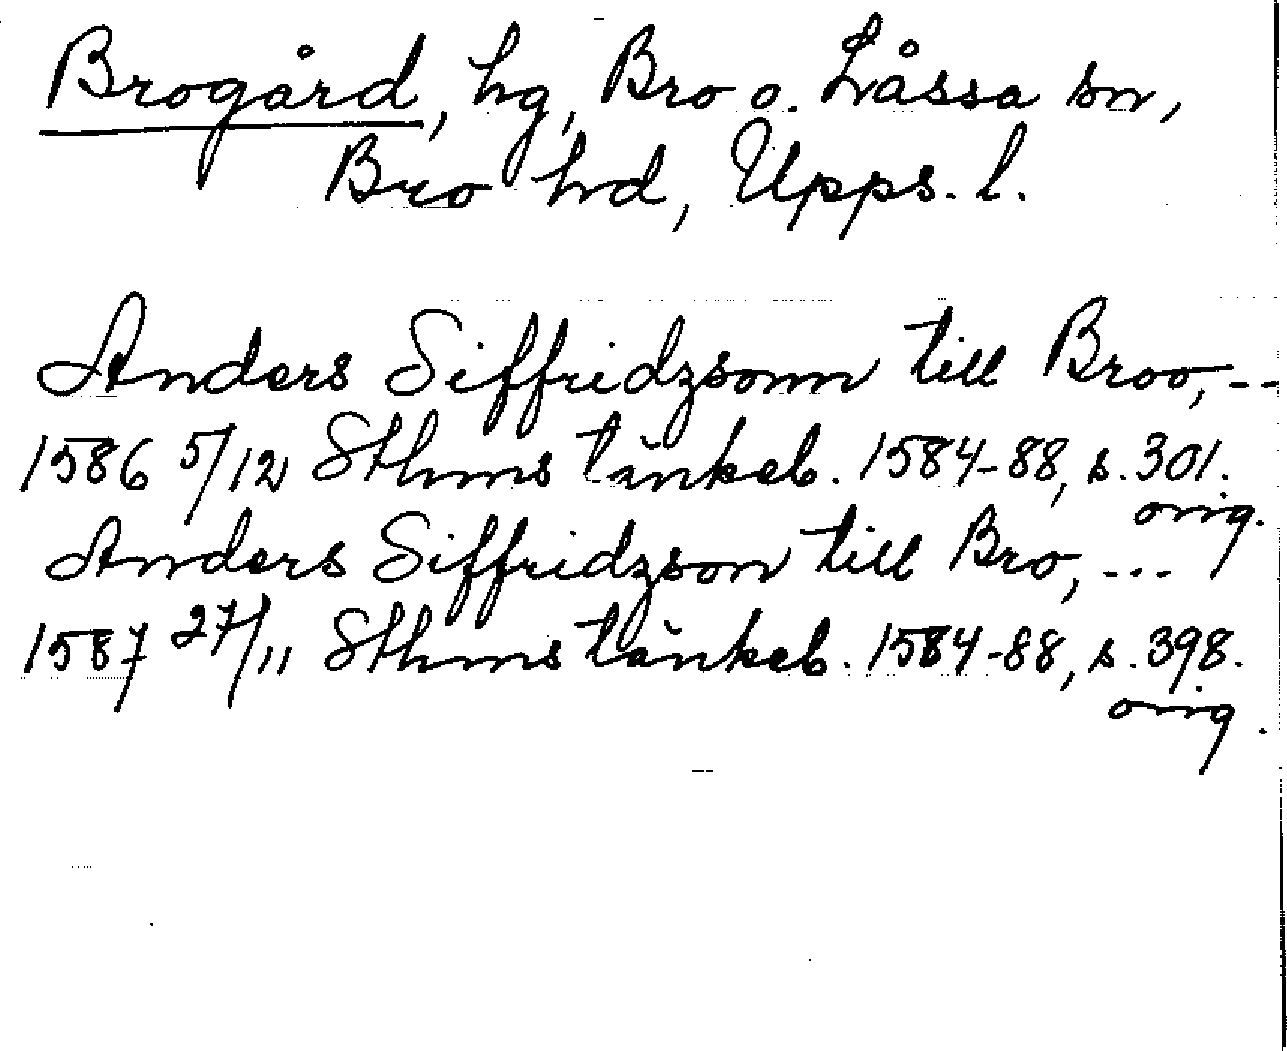 Brogård, hg, Bro o. Låssa sn,
Bro hd, Upps. l.
Anders Siffridzsonn till Broo, --
1586 5/12 Sthms tänkeb. 1584-88, s. 301.
orig.
Anders Siffridzson till Bro, ---
1587 27/11 Sthms tänkeb. 1584-88, s. 398.
orig.